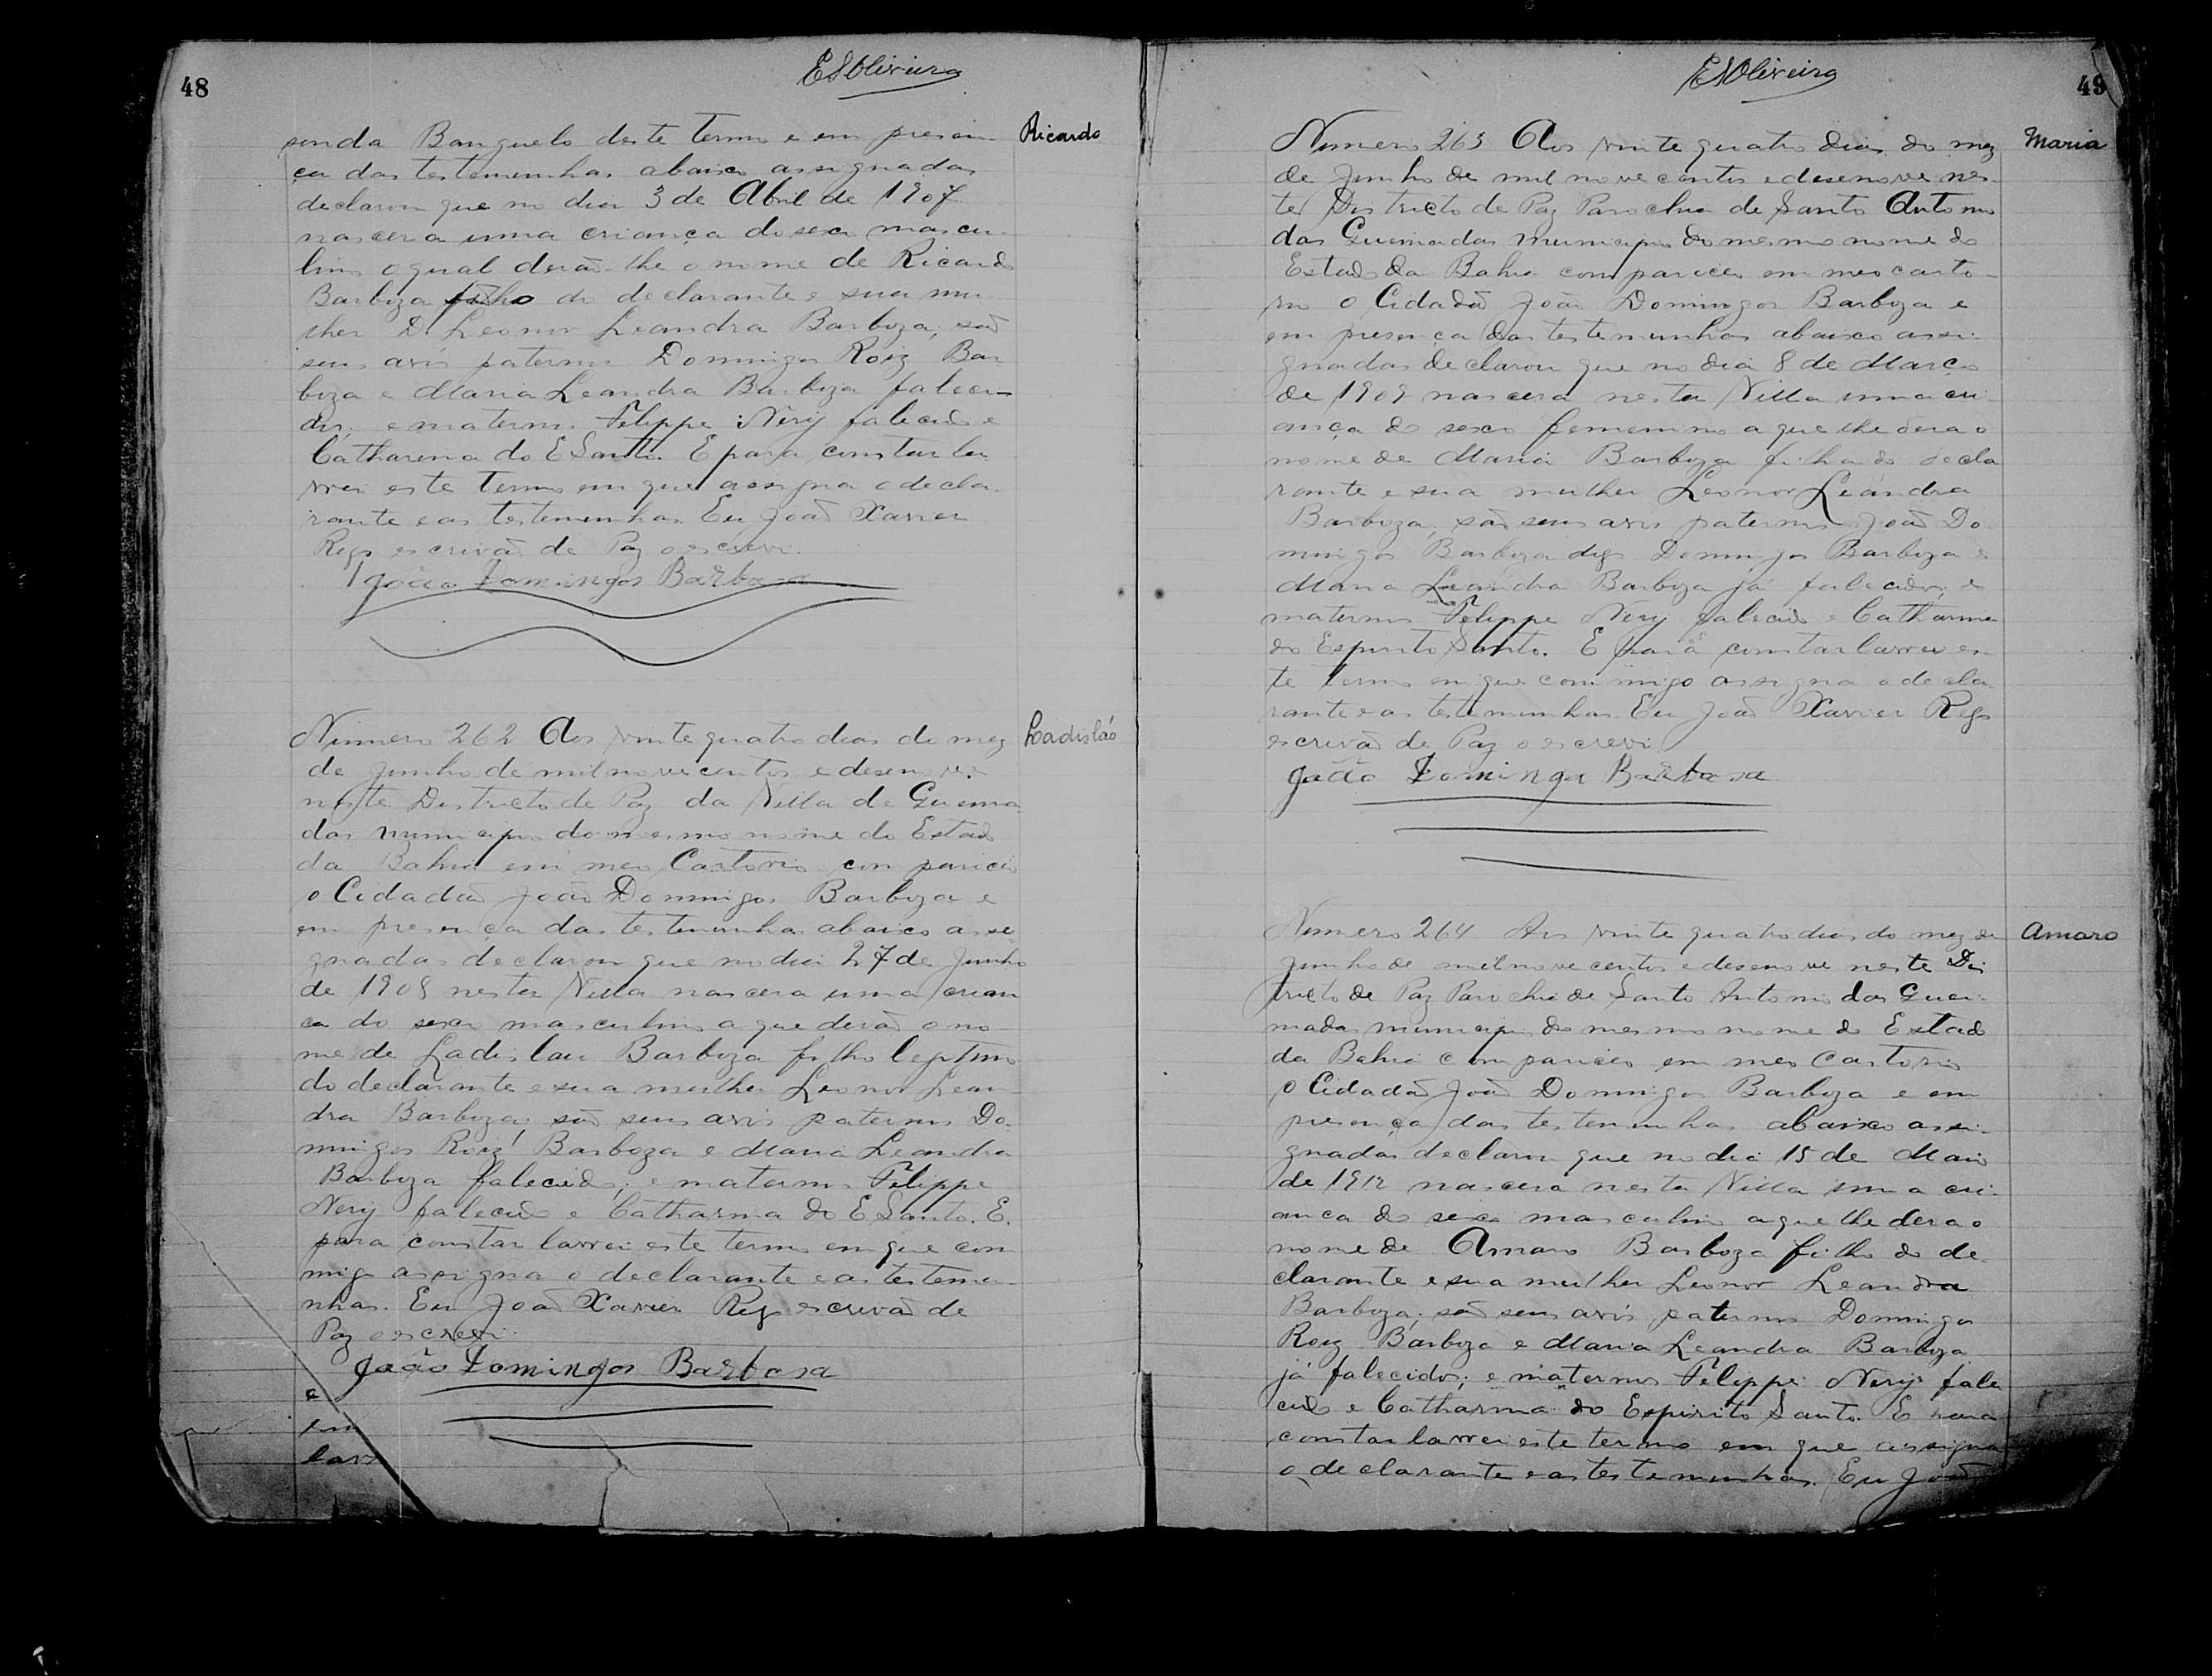 48
ESOliveira
Ricardo
senda Banguelo deste termo e em presen
ça das testemunhas abaixo assignadas
declarou que no dia 3 de Abril de 1907
nascera uma criança do sexo mascu
lino o qual derão-lhe o nome de Ricardo
Barboza filho do declarante e sua mu
lher D. Leonor Leandra Barboza; são
seus avós paternos Domingos Roiz Bar
boza e Maria Leandra Barboza faleci
dos; e maternos Felippe Nery falecido e
Catharina do E Santo. E para constar la
vrei este termo em que assigna o decla
rante e as testemunhas. Eu João Xavier
Rego escrivão de Paz o escrevi.
João Domingos Barbosa
Ladisláo
Numero 262 Aos vinte quatro dias do mez
de Junho de mil nove centos e desenove
neste Districto de Paz da Villa de Queima
das municipio do mesmo nome do Estado
da Bahia em meo Cartorio compareceo
o Cidadão João Domingos Barboza e
em presença das testemunhas abaixo assi
gnadas declarou que no dia 27 de Junho
de 1908 nesta Villa nascera uma crian
ca do sexo masculino a que derão o no
me de Ladislau Barboza filho legitimo
do declarante e sua mulher Leonor Lean
dra Barboza; são seus avós paternos Do
mingos Roiz Barboza e Maria Leandra
Barboza falecidos; e maternos Felippe
Nery falecido e Catharina do E Santo. E
para constar lavrei este termo em que com
migo assigna o declarante e as testemu
nhas. Eu João Xavier Rego escrivão de
Paz o escrevi.
João Domingos Barbosa
e
lavr
ESOliveira
49
Maria
Numero 263 Aos vinte quatro dias do mez
de Junho de mil nove centos e desenove nes
te Districto de Paz Parochia de Santo Antonio
das Queimadas municipio do mesmo nome do
Estado da Bahia compareceo em meo carto
rio o Cidadão João Domingos Barboza e
em presença das testemunhas abaixo assi
gnadas declarou que no dia 8 de Março
de 1909 nascera nesta Villa uma cri
ança do sexo femenino a que lhe dera o
nome de Maria Barboza filha do decla
rante e sua mulher Leonor Leandra
Barboza; são seus avós paternos João Do
mingos Barboza digo Domingos Barboza e
Maria Leandra Barboza já falecidos; e
maternos Felippe Nery falecido e Catharina
do Espirito Santo. E para constar lavrei es
te termo em que commigo assigna o decla
rante e as testemunhas. Eu João Xavier Rego
escrivão de Paz o escrevi.
João Domingos Barbosa
Amaro
Numero 264 Aos vinte quatro dias do mez de
Junho de mil nove centos e desenove neste Dis
tricto de Paz Parochia de Santo Antonio das Quei
madas municipio do mesmo nome do Estado
da Bahia compareceo em meo Cartorio
o Cidadão João Domingos Barboza e em
presença das testemunhas abaixo assi
gnadas declarou que no dia 15 de Maio
de 1912 nascera nesta Villa uma cri
anca do sexo masculino a que lhe dera o
nome de Amaro Barboza filho do de
clarante e sua mulher Leonor Leandra
Barboza; são seus avós paternos Domingos
Roiz Barboza e Maria Leandra Barboza
já falecidos; e maternos Felippe Nery fale
cido e Catharina do Espirito Santo. E para
constar lavrei este termo em que assigna
o declarante e as testemunhas. Eu João